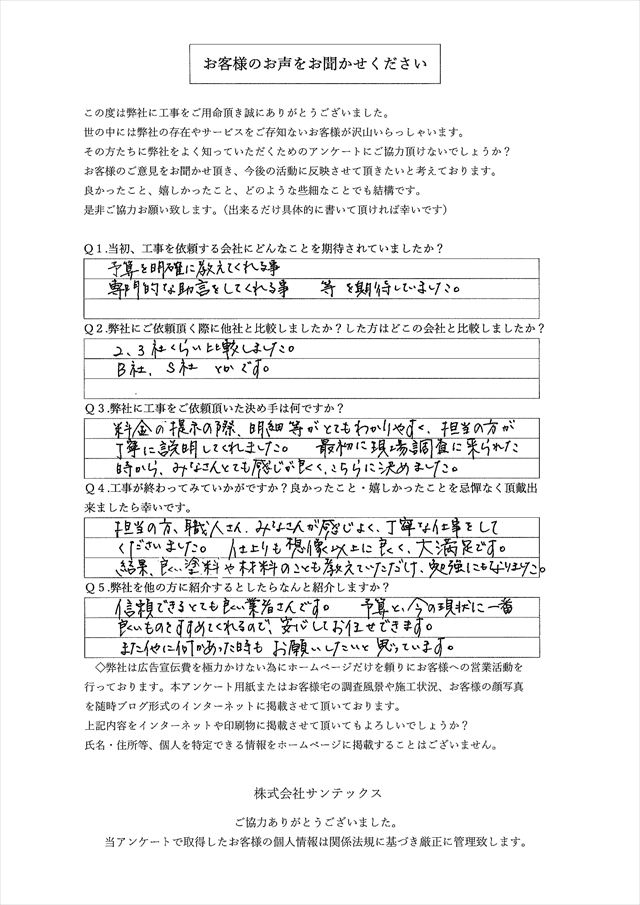 お客様のお声をお聞かせください
この度は弊社に工事をご用命頂き誠にありがとうございました。
世の中には弊社の存在やサービスをご存知ないお客様が沢山いらっしゃいます。
その方たちに弊社をよく知っていただくためのアンケートにご協力頂けないでしょうか？
お客様のご意見をお聞かせ頂き、今後の活動に反映させて頂きたいと考えております。
良かったこと、嬉しかったこと、どのような些細なことでも結構です。
是非ご協力お願い致します。（出来るだけ具体的に書いて頂ければ幸いです）
Ｑ１.当初、工事を依頼する会社にどんなことを期待されていましたか？
予算を明確に教えてくれる事
専門的な助言をしてくれる事 等を期待していました。
Ｑ２.弊社にご依頼頂く際に他社と比較しましたか？した方はどこの会社と比較しましたか？
2、3社くらい比較しました。
B社、S社 とかです。
Ｑ３.弊社に工事をご依頼頂いた決め手は何ですか？
料金の提示の際、明細等がとてもわかりやすく、担当の方が
丁寧に説明してくれました。 最初に現場調査に来られた
時から、みなさんとても感じが良く、こちらに決めました。
Ｑ４.工事が終わってみていかがですか？良かったこと・嬉しかったことを忌憚なく頂戴出
来ましたら幸いです。
担当の方、職人さん、みなさんが感じよく、丁寧な仕事をして
くださいました。 仕上りも想像以上に良く、大満足です。
結果、良い塗料や材料のことも教えていただけ、勉強にもなりました。
Ｑ５.弊社を他の方に紹介するとしたらなんと紹介しますか？
信頼できるとても良い業者さんです。 予算と、今の現状に一番
良いものをすすめてくれるので、安心してお任せできます。
また他に何かあった時も お願いしたいと思っています。
◇弊社は広告宣伝費を極力かけない為にホームページだけを頼りにお客様への営業活動を
行っております。本アンケート用紙またはお客様宅の調査風景や施工状況、お客様の顔写真
を随時ブログ形式のインターネットに掲載させて頂いております。
上記内容をインターネットや印刷物に掲載させて頂いてもよろしいでしょうか？
氏名・住所等、個人を特定できる情報をホームページに掲載することはございません。
株式会社サンテックス
ご協力ありがとうございました。
当アンケートで取得したお客様の個人情報は関係法規に基づき厳正に管理致します。